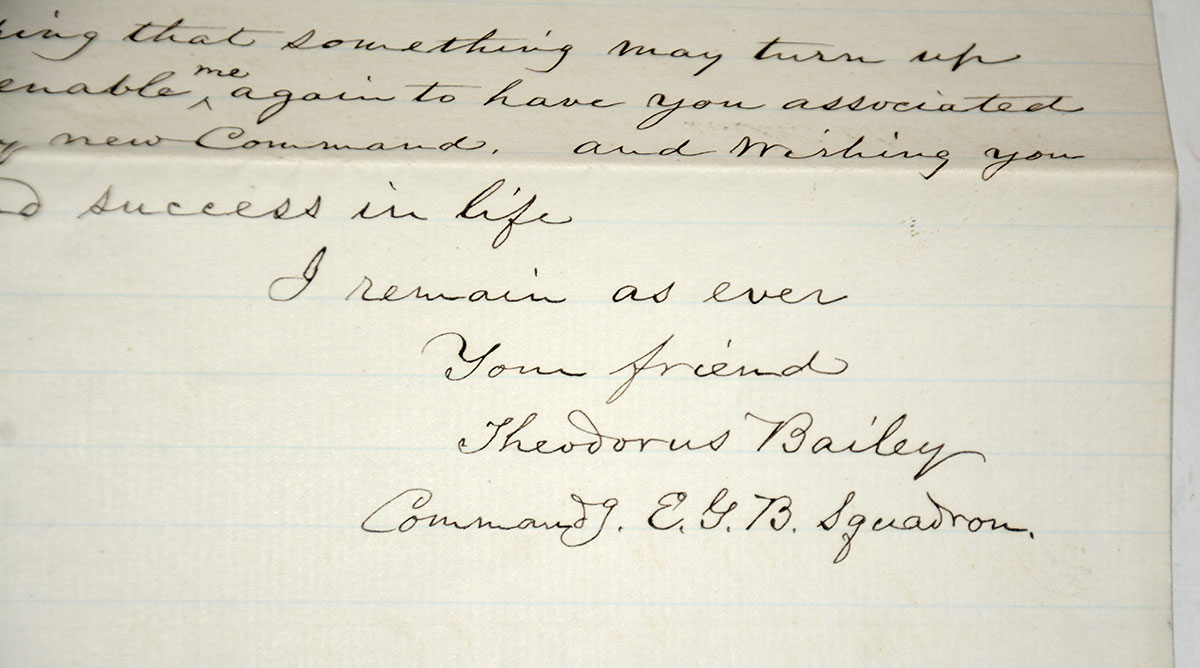 ing that something may turn up
enable me again to have you associated
new Command. and Wishing you
success in life
I remain as ever
Your friend
Theodorus Bailey
Commandg. E. G. B. Squadron.